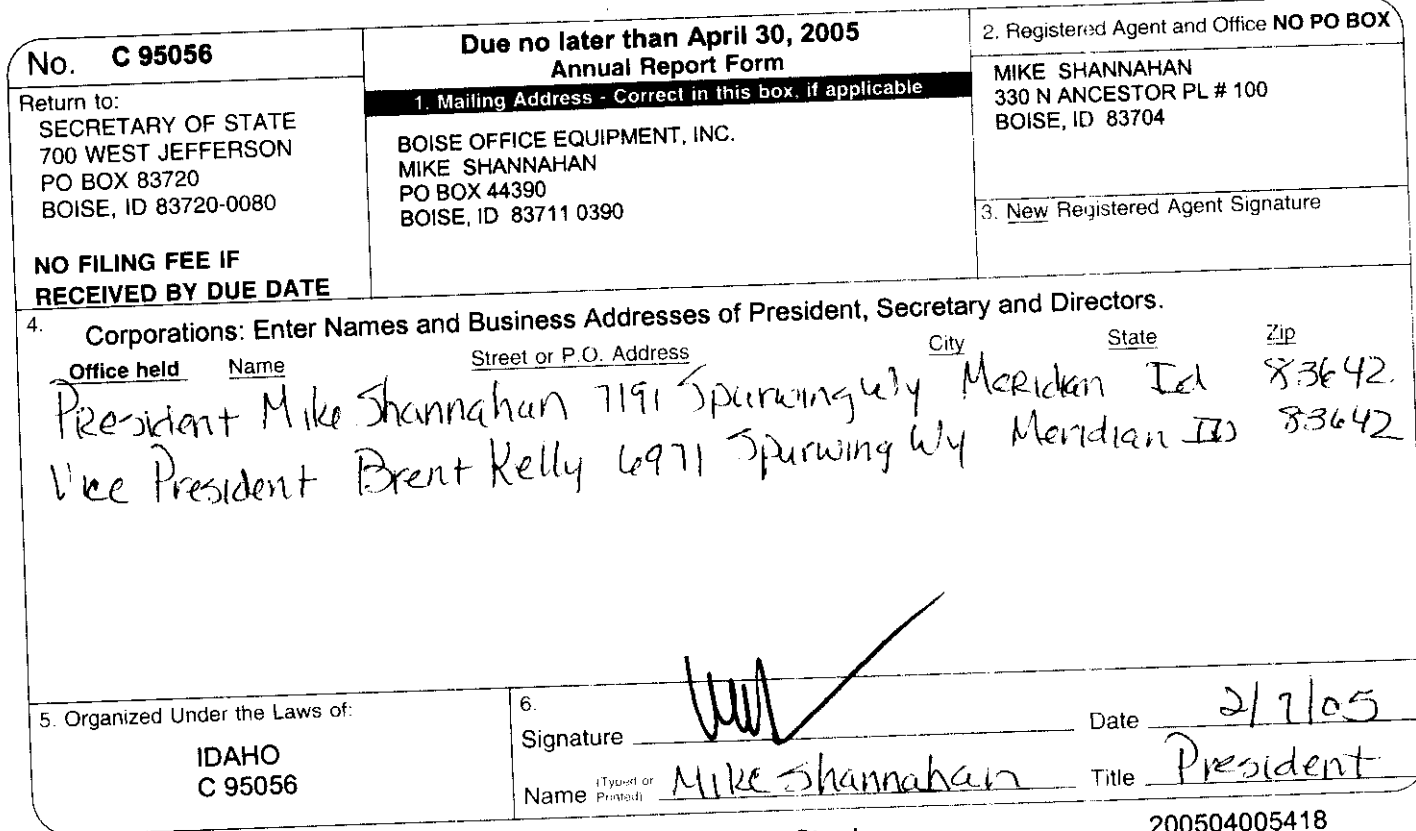 No. C 95056
Return to:
SECRETARY OF STATE
700 WEST JEFFERSON
PO BOX 83720
BOISE, ID 83720-0080
NO FILING FEE IF
RECEIVED BY DUE DATE
Due no later than April 30, 2005
Annual Report Form
1. Mailing Address - Correct in this box, if applicable
BOISE OFFICE EQUIPMENT, INC.
MIKE SHANNAHAN
PO BOX 44390
BOISE, ID 83711 0390
2. Registered Agent and Office NO PO BOX
MIKE SHANNAHAN
330 N ANCESTOR PL # 100
BOISE, ID 83704
3. New Registered Agent Signature
4. Corporations: Enter Names and Business Addresses of President, Secretary and Directors.
Office held Name Street or P.O. Address City State Zip
President Mike Shannahan 7191 Spurwing Wy Meridian Id 83642
Vice President Brent Kelly 6971 Spurwing Wy Meridian ID 83642
5. Organized Under the Laws of:
IDAHO
C 95056
6.
Signature
Date 2/7/05
Name (Typed or Printed) Mike Shannahan
Title President
200504005418